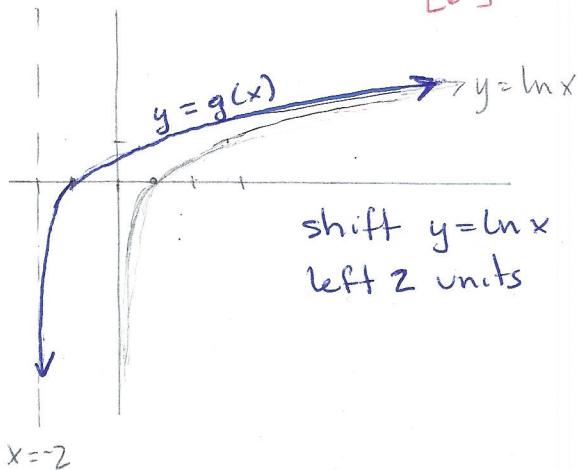 y = g(x)
y = ln x
shift y = ln x
left 2 units
x = -2